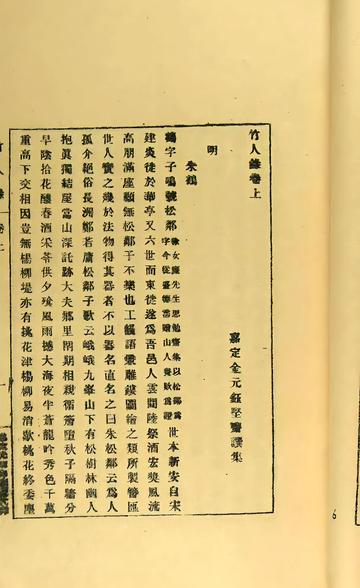 竹人錄卷上
嘉定金元鈺堅齋譔集
明
朱鶴
鶴字子鳴號松鄰
世本新安自宋
建炎徙於華亭又六世而東徙遂為吾邑人雲間陸祭酒宏奬風流
高朋滿座顧無松鄰子不樂也工韻語兼雕鏤圖繪之類所製簪匜
世人寶之幾於法物得其器者不以器名直名之曰朱松鄰云為人
孤介絕俗長洲鄭若庸松鄰子歌云峨峨九峯山下有松樹林幽人
抱眞獨結屋當山深託跡大夫鄉里閈期相親循齋墮秋子隔牆分
早陰拾花釀春酒采苓供夕飧風雨撼大海夜半蒼龍吟秀色千萬
重高下交相因豈無楊柳堤亦有桃花津楊柳易消歇桃花終委塵
竹人錄 卷上
6